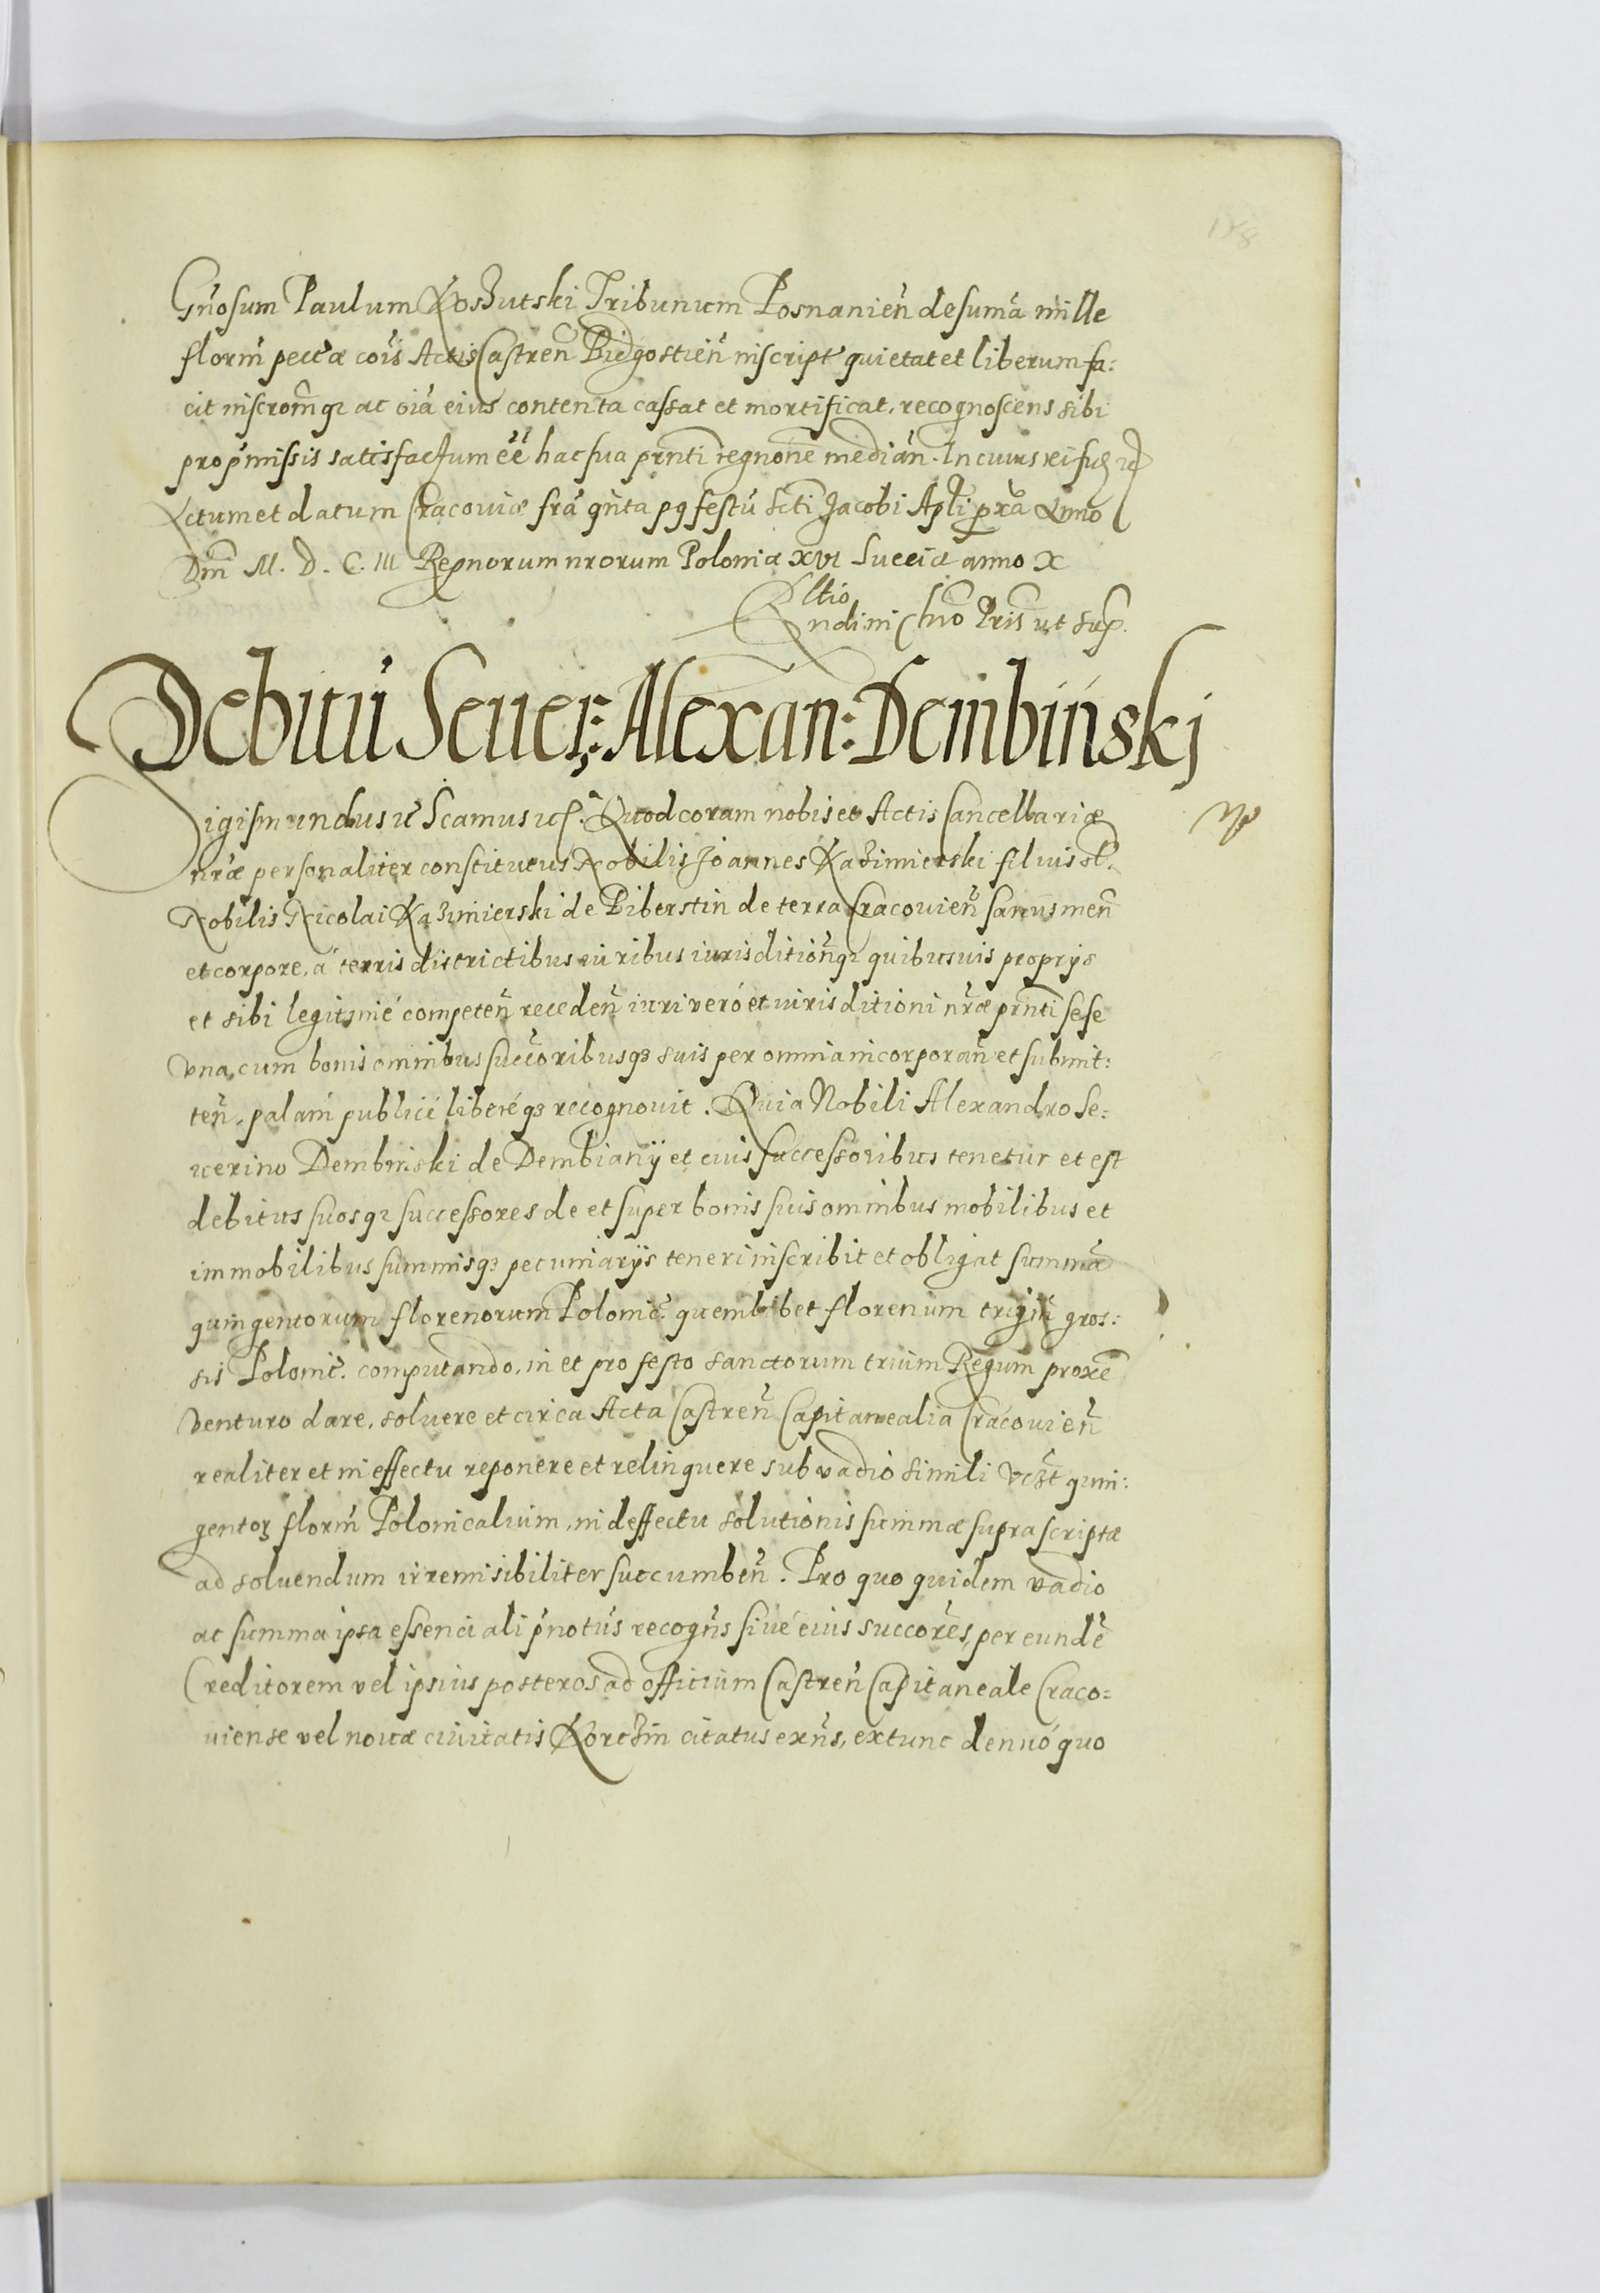 Gnosum Paulum Koszutski Tribunum Posnanien de suma mille
florm pectæ cois Actis Castren Bidgostien inscript quietat et liberum fa:
cit inscromq3 ac oia eius contenta cassat et mortificat, recognoscens sibi
pro pmissis satisfactum ee hac sua prnti regnone median. In cuius rei fid
Actum et datum Cracouiæ fra qnta pq festu Scti Jacobi Apli pxa Anno
Dni M. D. C. III Regnorum nrorum Poloniæ XVI Sueciæ anno X
Rltio
Rndi in Chro Pris ut sup.
Debitu Seuer: Alexan: Dembinskj
Sigismundus etc Scamus etc. Quod coram nobis et Actis Cancellariæ
nræ personaliter constitutus Nobilis Joannes Kazimierski filius ol.
Nobilis Nicolai Kazimierski de Biberstin de terra Cracouien sanus men
et corpore, a terris districtibus iuribus iurisditionq3 quibusuis proprys
et sibi legitimé competen receden iuri veró et iurisditioni nræ prnti sese
vna, cum bonis omnibus succoribusq3 suis per omnia incorporan et submit:
ten, palam publicé liberéq3 recognouit. Quia Nobili Alexandro Se:
uerino Dembinski de Dembiany et eius successoribus tenetur et est
debitus suosq3 successores de et super bonis suis omnibus mobilibus et
immobilibus summisq3 pecuniarijs teneri inscribit et obligat summa
quingentorum florenorum Polonic. quemlibet florenum trigin gros:
sis Polonic. computando, in et pro festo sanctorum trium Regum proxe
venturo dare, soluere et circa Acta Castren Capitanealia Cracouien
realiter et in effectu reponere et relinquere sub vadio simili vczt quin:
gentor florm Polonicalium, in deffectu solutionis summæ suprascriptæ
ad soluendum irremisibiliter succumben. Pro quo quidem vadio
ac summa ipsa essenciali pnotus recogns siué eius succores, per eunde
Creditorem vel ipsius posteros ad officium Castren Capitaneale Craco:
uiense vel nouæ ciuitatis Korczin citatus exns, extunc denuó quo